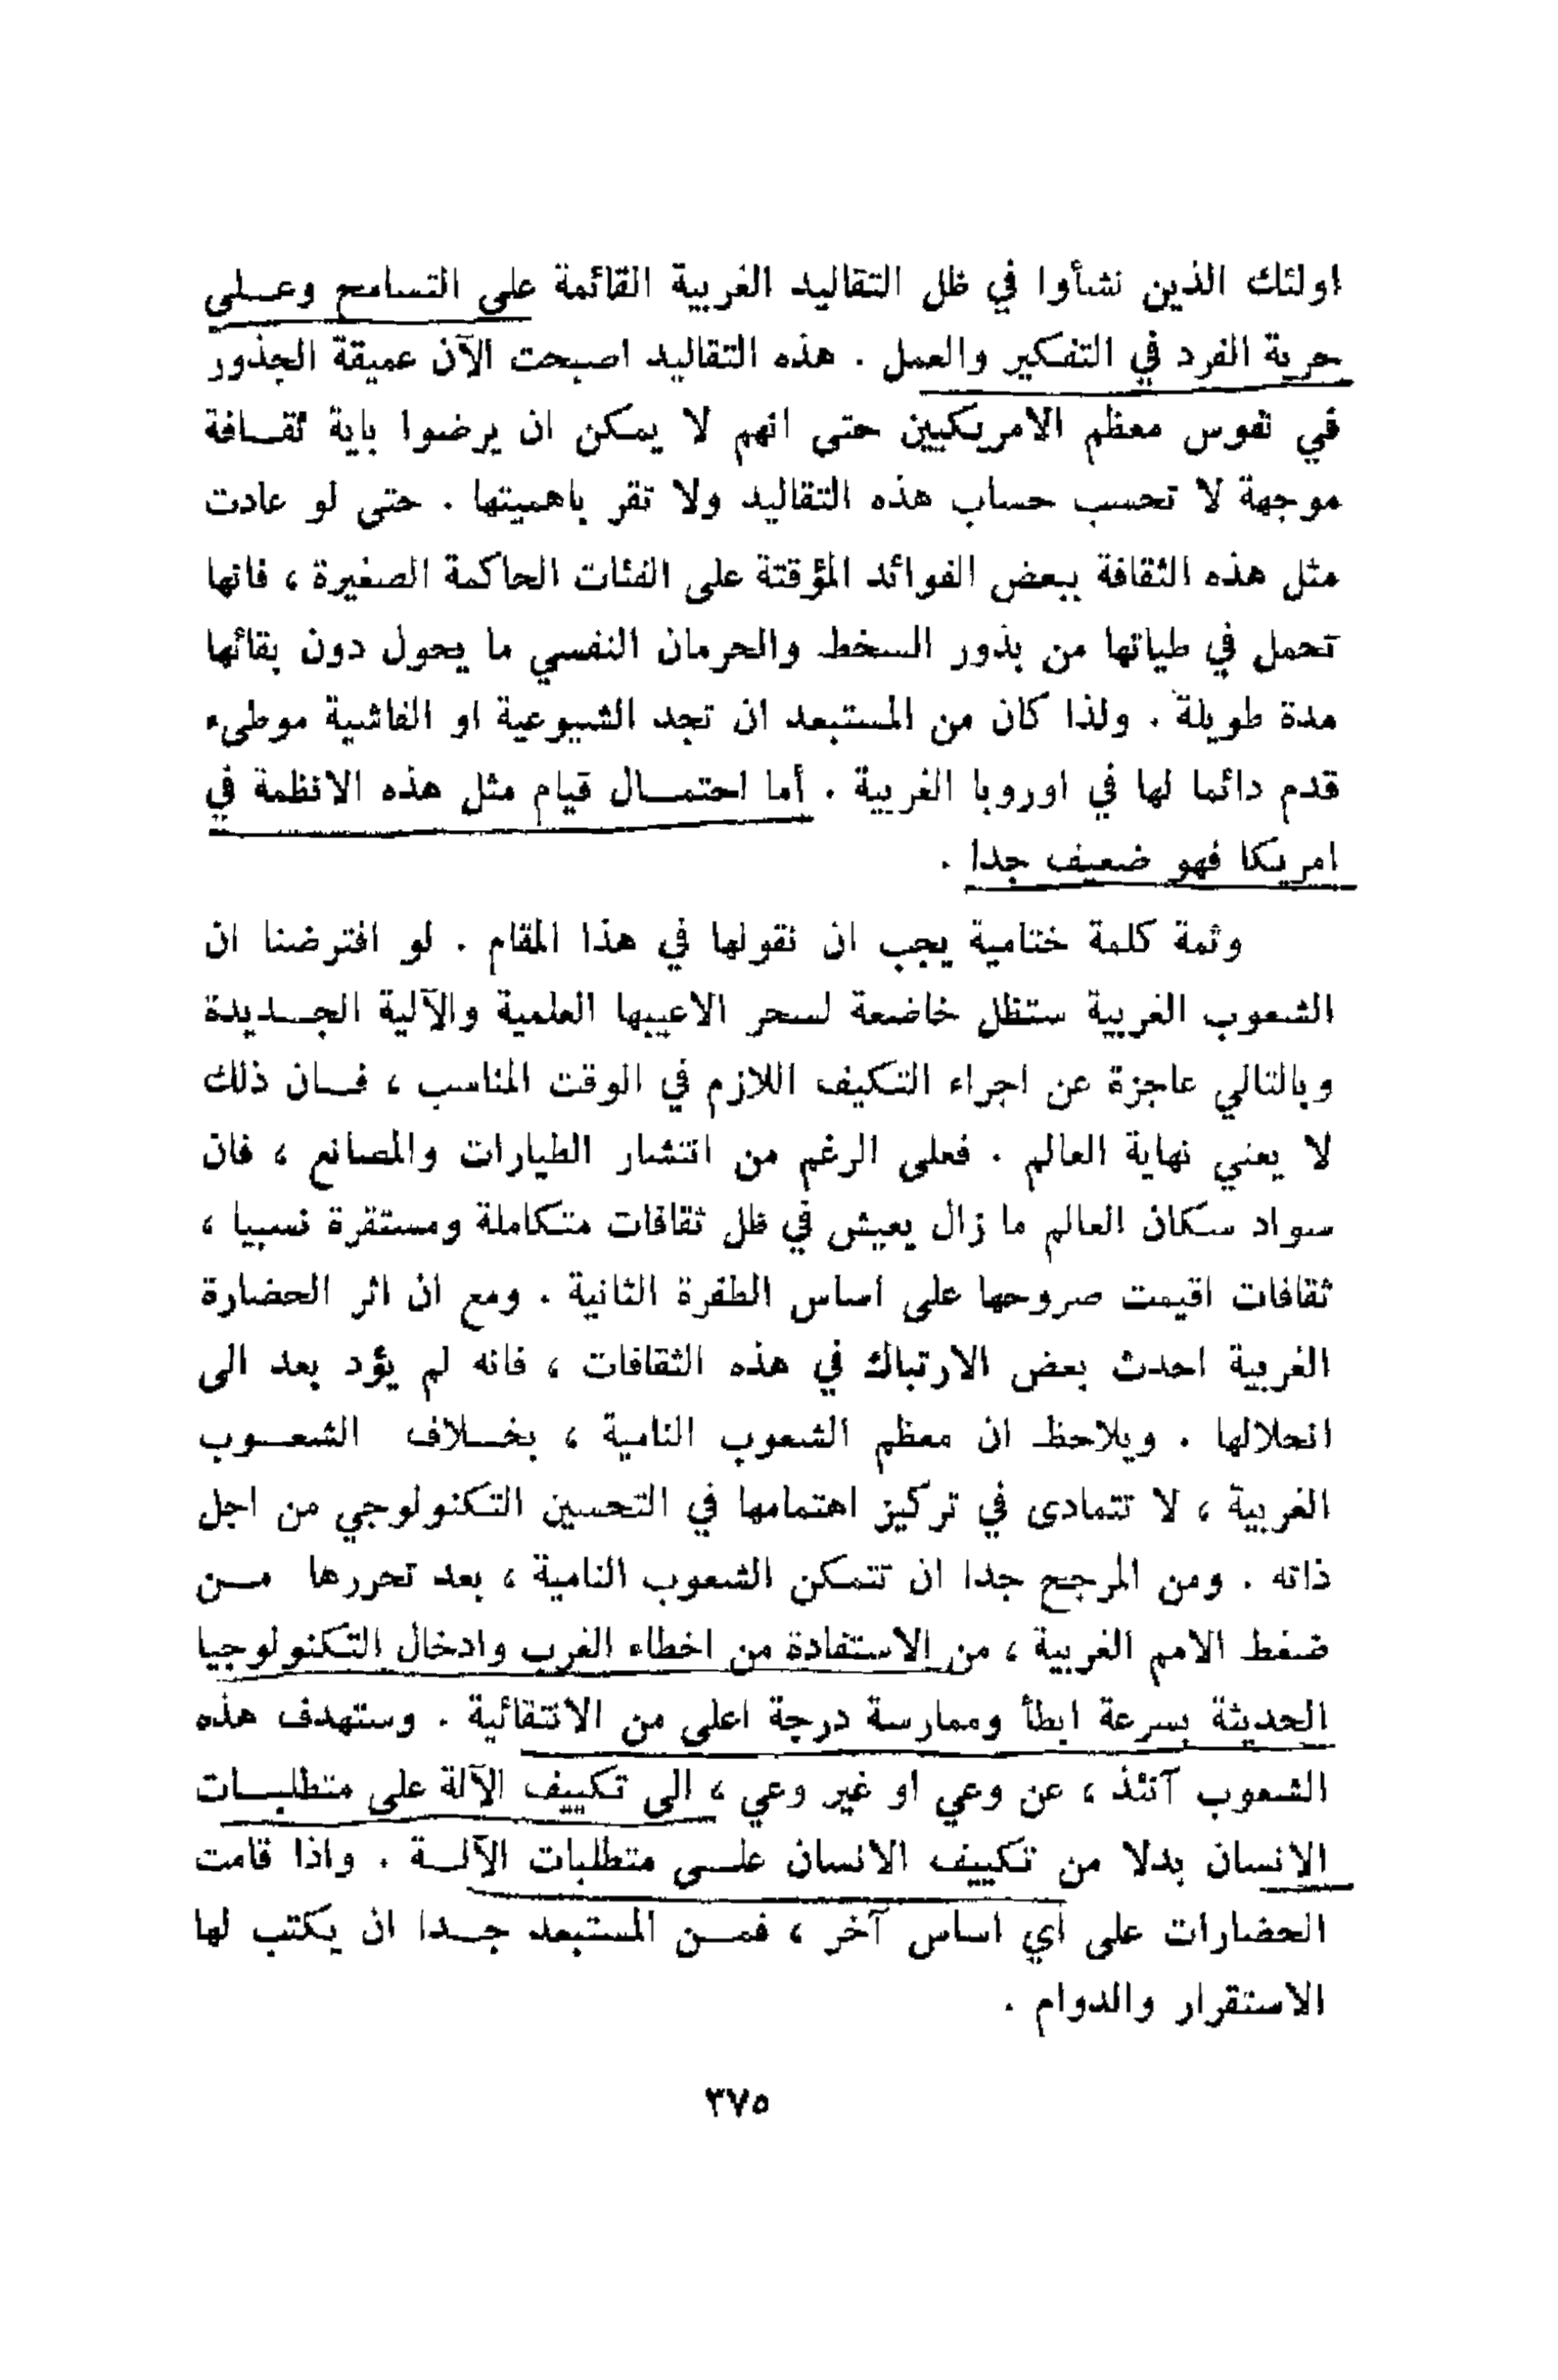 اولئك الذين نشأوا في ظل التقاليد الغربية القائمة على التسامح وعــلى
حرية الفرد في التفكير والعمل . هذه التقاليد اصبحت الآن عميقة الجذور
في نفوس معظم الامريكيين حتى انهم لا يمكن ان يرضوا باية ثقــافة
موجهة لا تحسب حساب هذه التقاليد ولا تقر باهميتها . حتى لو عادت
مثل هذه الثقافة ببعض الفوائد المؤقتة على الفئات الحاكمة الصغيرة ، فانها
تحمل في طياتها من بذور السخط والحرمان النفسي ما يحول دون بقائها
مدة طويلة . ولذا كان من المستبعد ان تجد الشيوعية او الفاشية موطىء
قدم دائما لها في اوروبا الغربية . أما احتمــال قيام مثل هذه الانظمة في
امريكا فهو ضعيف جدا .
وثمة كلمة ختامية يجب ان نقولها في هذا المقام . لو افترضنا ان
الشعوب الغربية ستظل خاضعة لسحر الاعيبها العلمية والآلية الجــديدة
وبالتالي عاجزة عن اجراء التكيف اللازم في الوقت المناسب ، فــان ذلك
لا يعني نهاية العالم . فعلى الرغم من انتشار الطيارات والمصانع ، فان
سواد سكان العالم ما زال يعيش في ظل ثقافات متكاملة ومستقرة نسبيا ،
ثقافات اقيمت صروحها على اساس الطفرة الثانية . ومع ان اثر الحضارة
الغربية احدث بعض الارتباك في هذه الثقافات ، فانه لم يؤد بعد الى
انحلالها . ويلاحظ ان معظم الشعوب النامية ، بخــلاف الشعــوب
الغربية ، لا تتمادى في تركيز اهتمامها في التحسين التكنولوجي من اجل
ذاته . ومن المرجح جدا ان تتمكن الشعوب النامية ، بعد تحررها مــن
ضغط الامم الغربية ، من الاستفادة من اخطاء الغرب وادخال التكنولوجيا
الحديثة بسرعة ابطأ وممارسة درجة اعلى من الانتقائية . وستهدف هذه
الشعوب آنئذ ، عن وعي او غير وعي ، الى تكييف الآلة على متطلبــات
الانسان بدلا من تكييف الانسان علــى متطلبات الآلــة . واذا قامت
الحضارات على أي اساس آخر ، فمــن المستبعد جــدا ان يكتب لها
الاستقرار والدوام .
٣٧٥